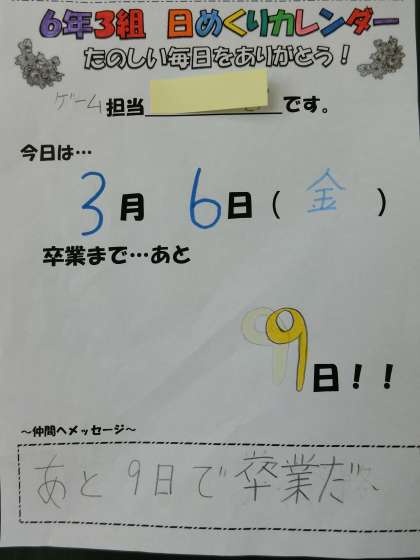 6年3組 日めくりカレンダー
たのしい毎日をありがとう！
ゲーム担当 です。
今日は…
3月 6日（金）
卒業まで…あと
9日！！
～仲間へメッセージ～
あと9日で卒業だ、